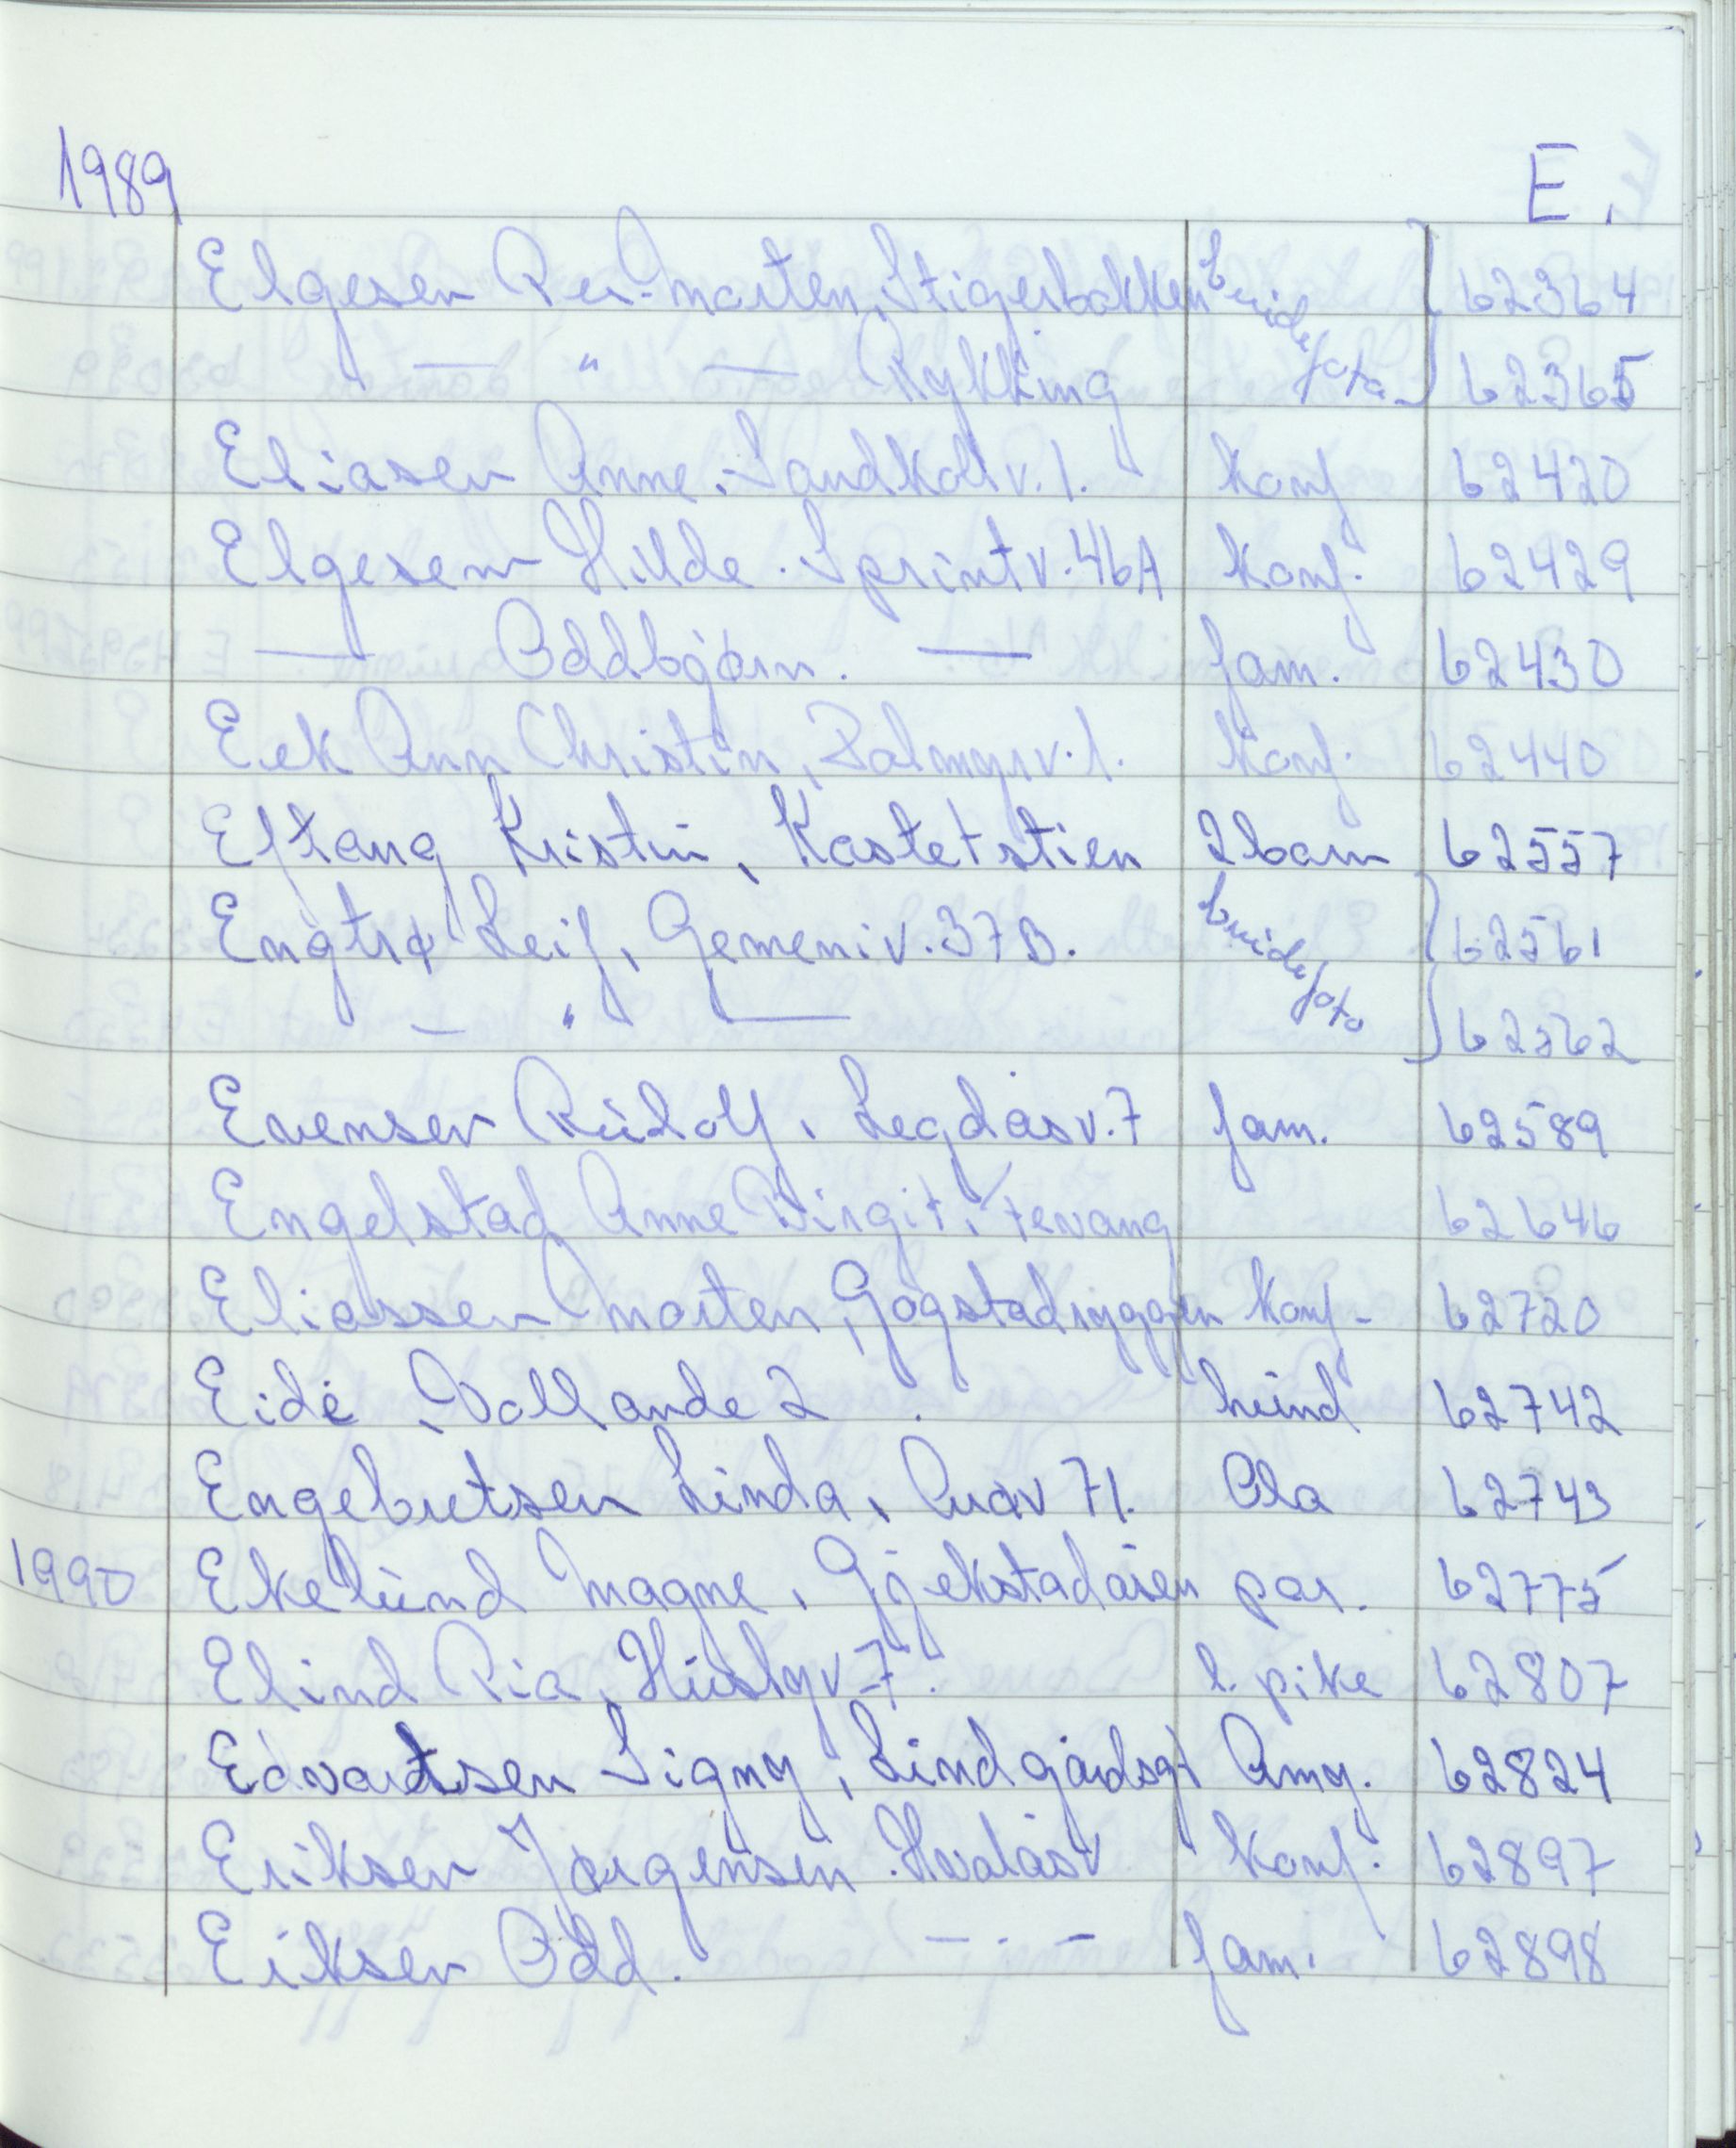 1989 E.
Elgesen Per-Morten, Stigerbakken brudefoto 62364
— " — Rykking 62365
Eliasen Anne. Sandkollv. 1. Konf 62420
Elgesem Hilde. Sprintv. 46A Konf. 62429
— Oddbjørn. — fam. 62430
Eek Ann Christin, Palmyrv. 1. Konf. 62440
Eftang Kristin, Kastetstien 2 barn 62557
Engtrø Leif, Gemeniv. 37B. brudefoto 62561
— " — 62562
Evensen Rudolf, Legdåsv. 7 fam. 62589
Engelstad Anne Birgit, Tenvang 62646
Eliassen Morten, Gogstadryggen Konf- 62720
Eide, Vollande 2. hund 62742
Engebretsen Linda, Auav 71. Ola 62743
1990 Ekelund Magne, Gjekstadåsen par. 62775
Elind Pia, Huslyv 7. l. pike 62807
Edvartsen Signy, Lindgårdsgt Amy. 62824
Eriksen Jørgensen. Hvalåsv Konf. 62897
Eiksen Odd. — . — fam. 62898